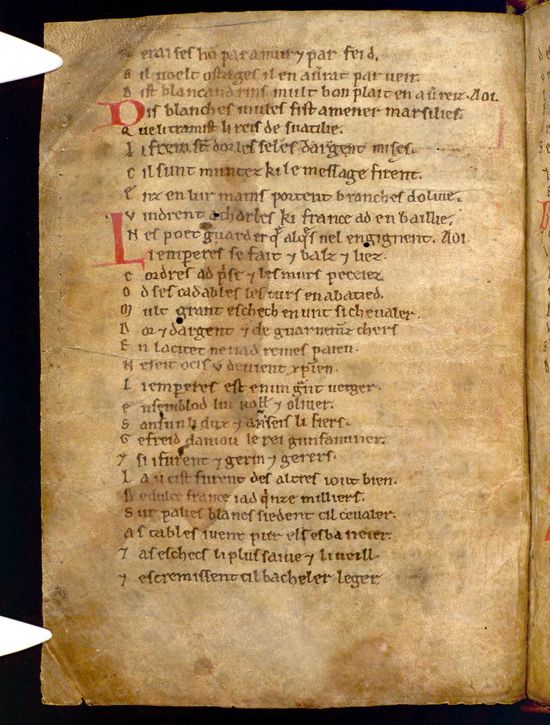 Serai ses hõ par amur ⁊ par feid.
S il voelt ostages il en aũrat par veir.
D ist blancandrins mult bon plait en aũreiz. Aoi.
Dis blanches mules fist amener marsilies
Q ue li tramist li reis de suatilie.
L i frein sũt dor les seles dargent mises.
C il sunt muntez ki le message firent.
E nz en lur mains portent branches dolive.
V indrent a charles ki france ad en baillie.
N es poet guarder q̃ alq̃s nel engignent. AOI
Li empereres se fait ⁊ balz ⁊ liez.
C ordres ad p̃se ⁊ les murs peceiez.
O d ses cadables les turs en abatied.
M ult grant eschech en unt si chevaler.
D or ⁊ dargent ⁊ de guarnemz̃ chers
E n la citet ne nad remes paien.
N e seit ocis u devient xp̃ien.
L i empereres est en un gñt verger.
E nsemblod lui roll̃ ⁊ oliver.
S ansun li dux ⁊ añseis li fiers.
G efreid daniou le rei gunfanuner.
⁊ si i furent ⁊ gerin ⁊ gerers.
L a u cist furent des altres i out bien.
D e dulce france i ad q̃nze milliers.
S ur palies blancs siedent cil cevaler.
A s tables iuent pur els esbaneier.
⁊ as eschecs li plus saive ⁊ li veill.
⁊ escremissent cil bacheler leger